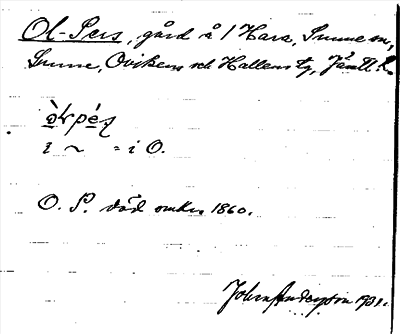 Ol-Pers, gård å 1 Kara, Sunne sn,
Sunne, Ovikens och Hallens tg, Jämtl. l.
i ~ = i O.
O. P. död omkr. 1860.
John Anderzon 1931.